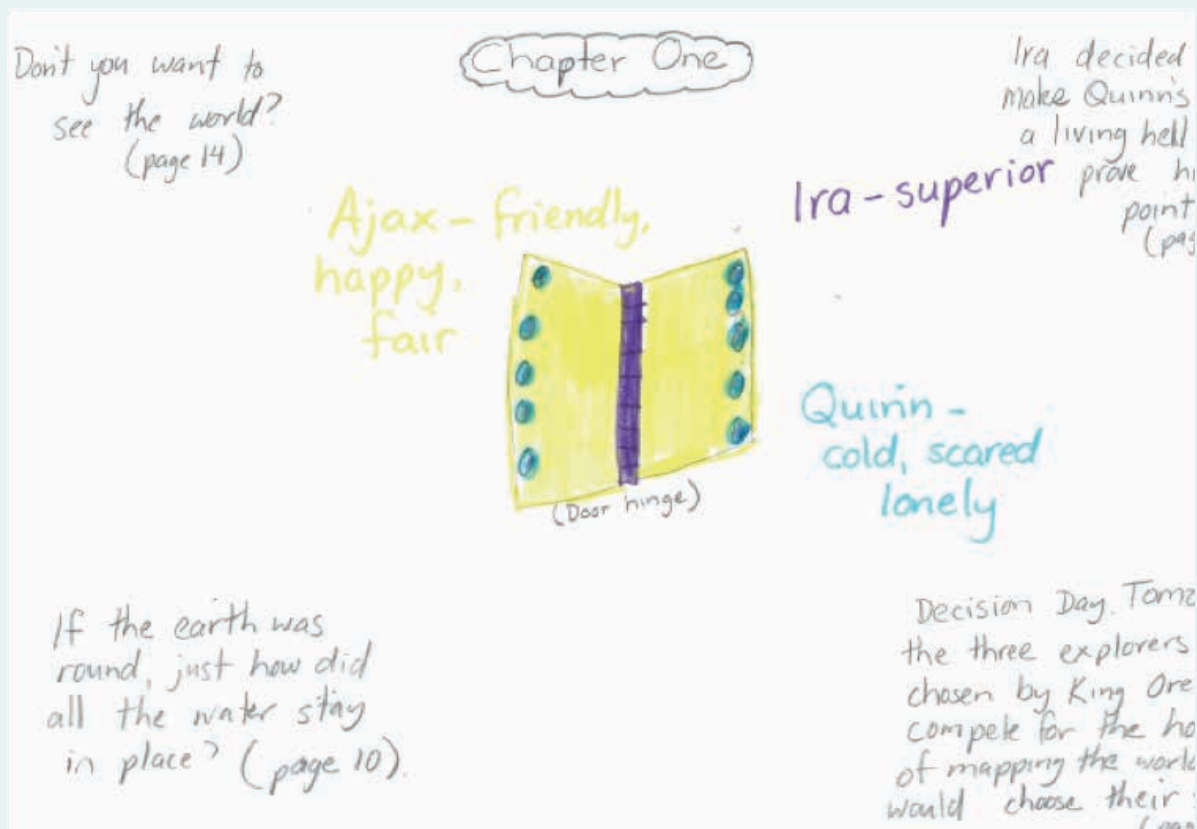 Chapter One
Don't you want to
see the world?
(page 14)
Ira decided
make Quinn's
a living hell
prove
point
Ajax - friendly,
happy,
fair
Ira - superior
(Door hinge)
Quinn -
cold, scared
lonely
If the earth was
round, just how did
all the water stay
in place? (page 10).
Decision Day.
the three explorers
chosen by King
compete for the
of mapping the world
would choose their